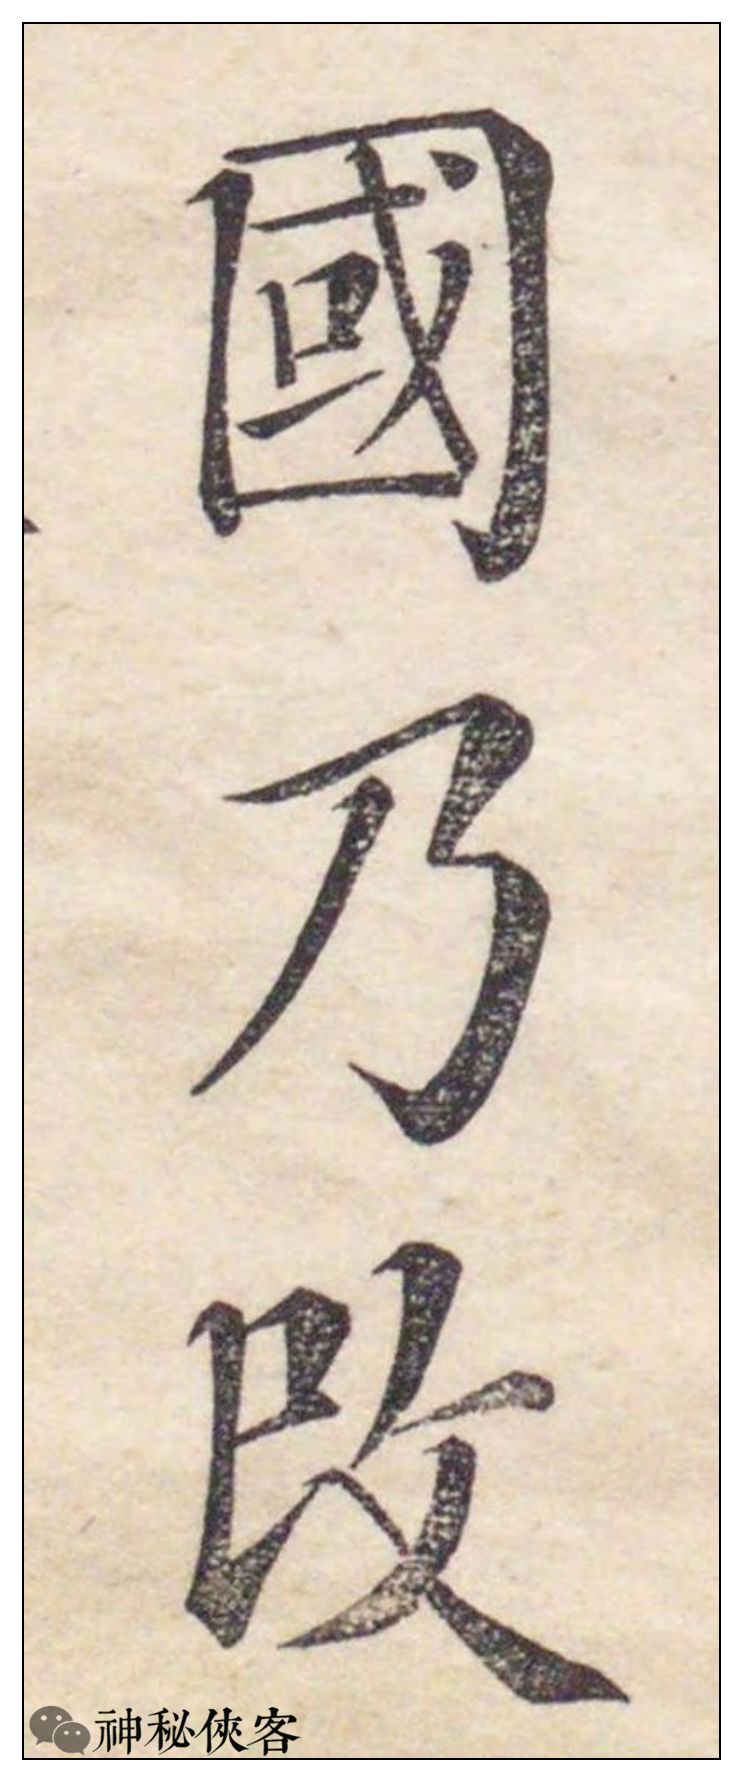 國乃改
神秘俠客